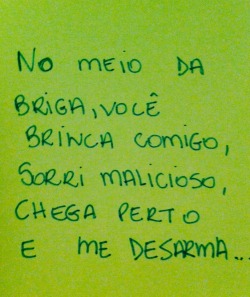 NO MEIO DA
BRIGA, VOCÊ
BRINCA COMIGO,
SORRI MALICIOSO,
CHEGA PERTO
E ME DESARMA...